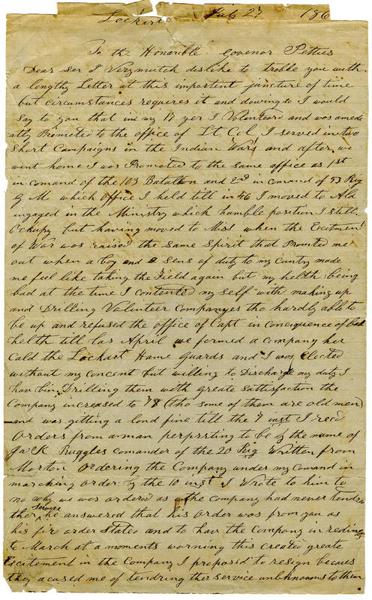 Lockart July 27 186
To the Honorible Govenor Pettus
Dear Ser I Verymutch deslike to troble you with
a lengthy Letter at this importent juncture of time
but circumstances requeres it and
say to you that in my 17 yer I Volunteerd and was
Promoted to the office of Lt Col I served in two
Short Campaigns in the Indian Wars and after we
went home I was Promoted to the same office as 1st
in comand of the 103 Batallion and 2nd in comand of 83 Reg
G M which office I held till in 46 I moved to Ala
ingaged in the Ministry which humble position I still
Ockupy but having moved to Miss when the Excitement
of War was raised the Same Spirit that Promted me
out when a boy and a Sens of duty to my Cuntry made
me feel like taking the Field again but my helth being
bad at the time I contented my self with making up
and Drilling Volunteer Companyes tho hardly able to
be up and refused the office of Capt in consequence of bad
helth till las April we formed a Company her
Cald the Lockart Home Guards and I was Elected
without my concent but willing to Discharge my duty I
hav bin Drilling them with greate Satisfaction the
Company increased to 78 (tho some of them are old men
and was gitting a long fine till the 7 inst I recd
Orders from a man perporting to be of the name of
Jack Ruggles comander of the 20 Reg Written from
Morton Ordering the Company under my comand in
marching order by the 10 inst I Wrote to him to
no why we was orderd as the company had never tendrd
ther Serves he answered that his order was from you as
his fir order States and to hav the Company in redines
to March at a moments warning this creates greate
Excitement in the Company I proposed to resign becaus
they acused me of tendring ther service unbknowns to them